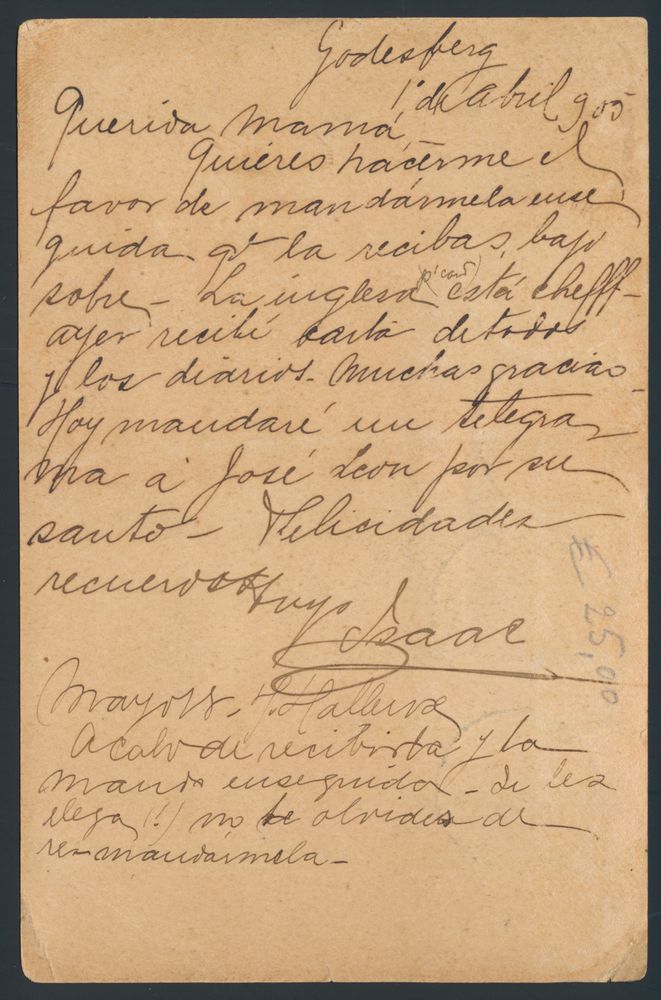 Godesberg
1º de Abril 905
Querida Mamá,
Quiéres hacérme el
favor de mandármela ense
guida qe la recibas, bajo
sobre - La inglesa está cheff-
ayer recibí carta de todos
y los diarios. Muchas gracias
Hoy mandaré un telegra
ma á José Leon por su
santo - Felicidades
recuerdos tuyo
Isaac
Mayo 18.
Acabo de recibirla y la
mando enseguida - Si les
llega (!) no te olvides de
re-mandármela -
£ 25,00